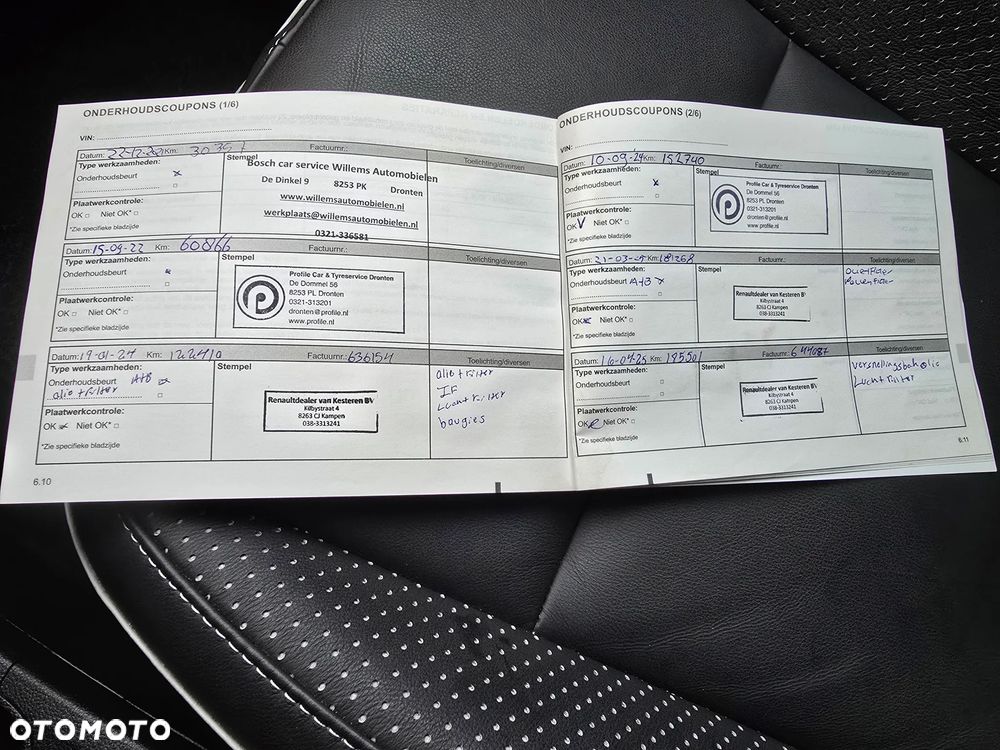 ONDERHOUDSCOUPONS (1/6)
VIN:
Datum: Km: Factuurnr.:
Type werkzaamheden: Stempel Toelichting/diversen
Onderhoudsbeurt x
Bosch car service Willems Automobielen
De Dinkel 9 8253 PK Dronten
www.willemsautomobielen.nl
werkplaats@willemsautomobielen.nl
0321-336581
Plaatwerkcontrole:
OK □ Niet OK* □
*Zie specifieke bladzijde
Datum: 15-09-22 Km: 60866 Factuurnr.:
Type werkzaamheden: Stempel Toelichting/diversen
Onderhoudsbeurt
Profile Car & Tyreservice Dronten
De Dommel 56
8253 PL Dronten
0321-313201
dronten@profile.nl
www.profile.nl
Plaatwerkcontrole:
OK □ Niet OK* □
*Zie specifieke bladzijde
Datum: 19-01-24 Km: Factuurnr.: 636154
Type werkzaamheden: Stempel Toelichting/diversen
Onderhoudsbeurt A+B
olie + Filter
Renaultdealer van Kesteren BV
Kilbystraat 4
8263 CJ Kampen
038-3313241
olie + Filter
IF
Lucht Filter
bougies
Plaatwerkcontrole:
OK Niet OK* □
*Zie specifieke bladzijde
6.10
ONDERHOUDSCOUPONS (2/6)
VIN:
Datum: 10-09-24 Km: 152740 Factuurnr.:
Type werkzaamheden: Stempel Toelichting/diversen
Onderhoudsbeurt x
Profile Car & Tyreservice Dronten
De Dommel 56
8253 PL Dronten
0321-313201
dronten@profile.nl
www.profile.nl
Plaatwerkcontrole:
OK V Niet OK* □
*Zie specifieke bladzijde
Datum: 21-03-25 Km: 181268 Factuurnr.:
Type werkzaamheden: Stempel Toelichting/diversen
Onderhoudsbeurt A+B x
Renaultdealer van Kesteren BV
Kilbystraat 4
8263 CJ Kampen
038-3313241
Plaatwerkcontrole:
OK Niet OK* □
*Zie specifieke bladzijde
Datum: Km: 185501 Factuurnr.:
Type werkzaamheden: Stempel Toelichting/diversen
Onderhoudsbeurt □
Renaultdealer van Kesteren BV
Kilbystraat 4
8263 CJ Kampen
038-3313241
versnellingsbakolie
Lucht Filter
Plaatwerkcontrole:
OK Niet OK* □
*Zie specifieke bladzijde
6.11
OTOMOTO